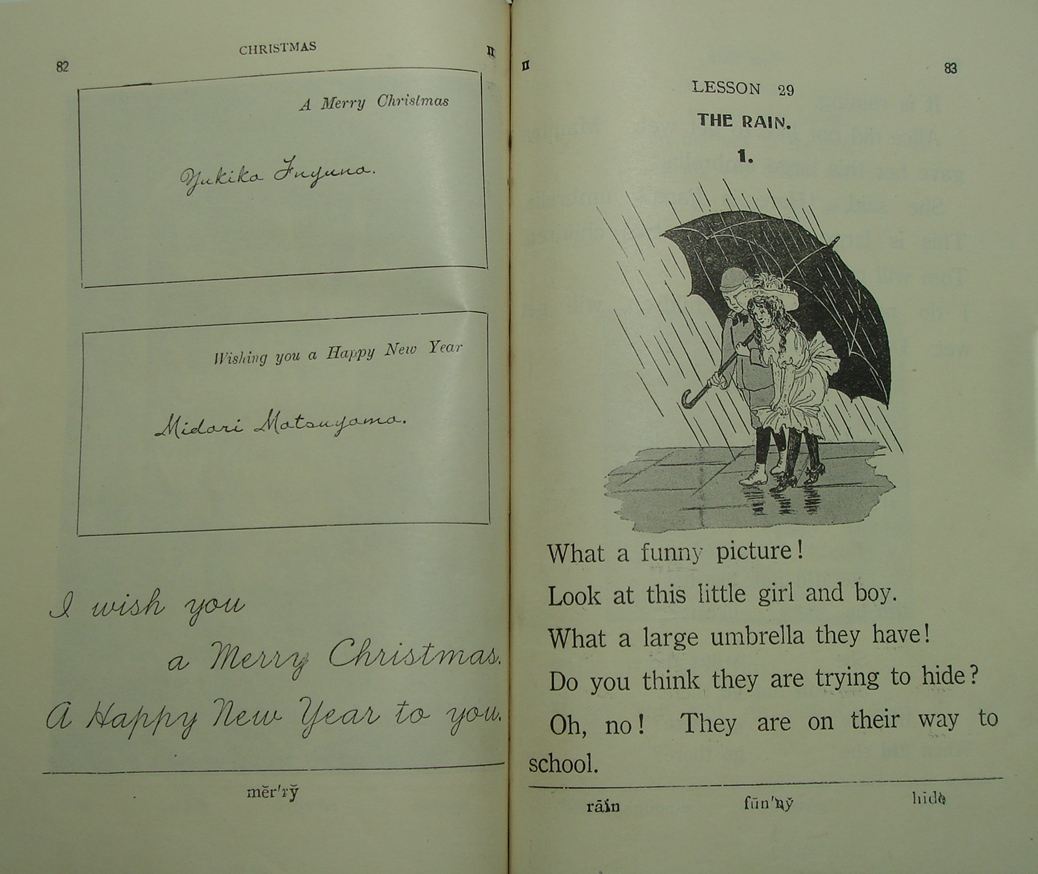 82
CHRISTMAS
II
A Merry Christmas
Yukiko Fuyuno.
Wishing you a Happy New Year
Midori Matsuyama.
I wish you
a Merry Christmas.
A Happy New Year to you.
mĕr'rў
II
83
LESSON 29
THE RAIN.
1.
What a funny picture!
Look at this little girl and boy.
What a large umbrella they have!
Do you think they are trying to hide?
Oh, no! They are on their way to
school.
rāin
fŭn'nў
hīde